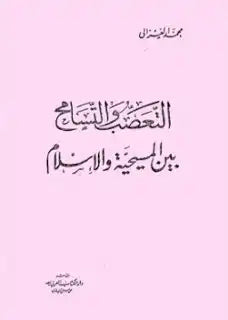 محمد الغزالي
التعصب والتسامح
بين المسيحية والإسلام